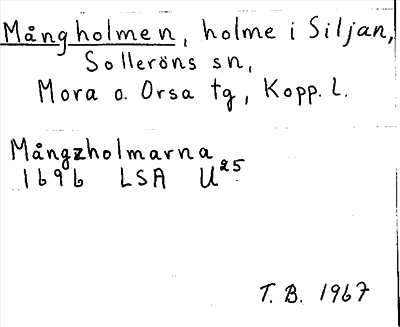 Mångholmen, holme i Siljan,
Solleröns sn,
Mora o. Orsa tg, Kopp. l.
Mångzholmarna
1696 LSA U25
T. B. 1967